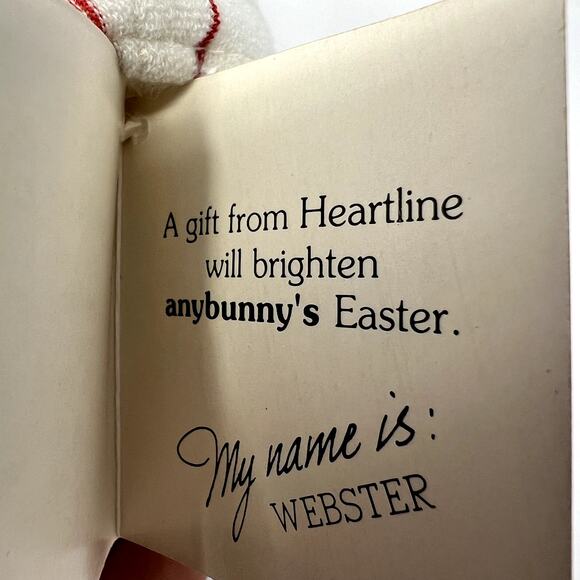 A gift from Heartline
will brighten
anybunny's Easter.
My name is:
WEBSTER